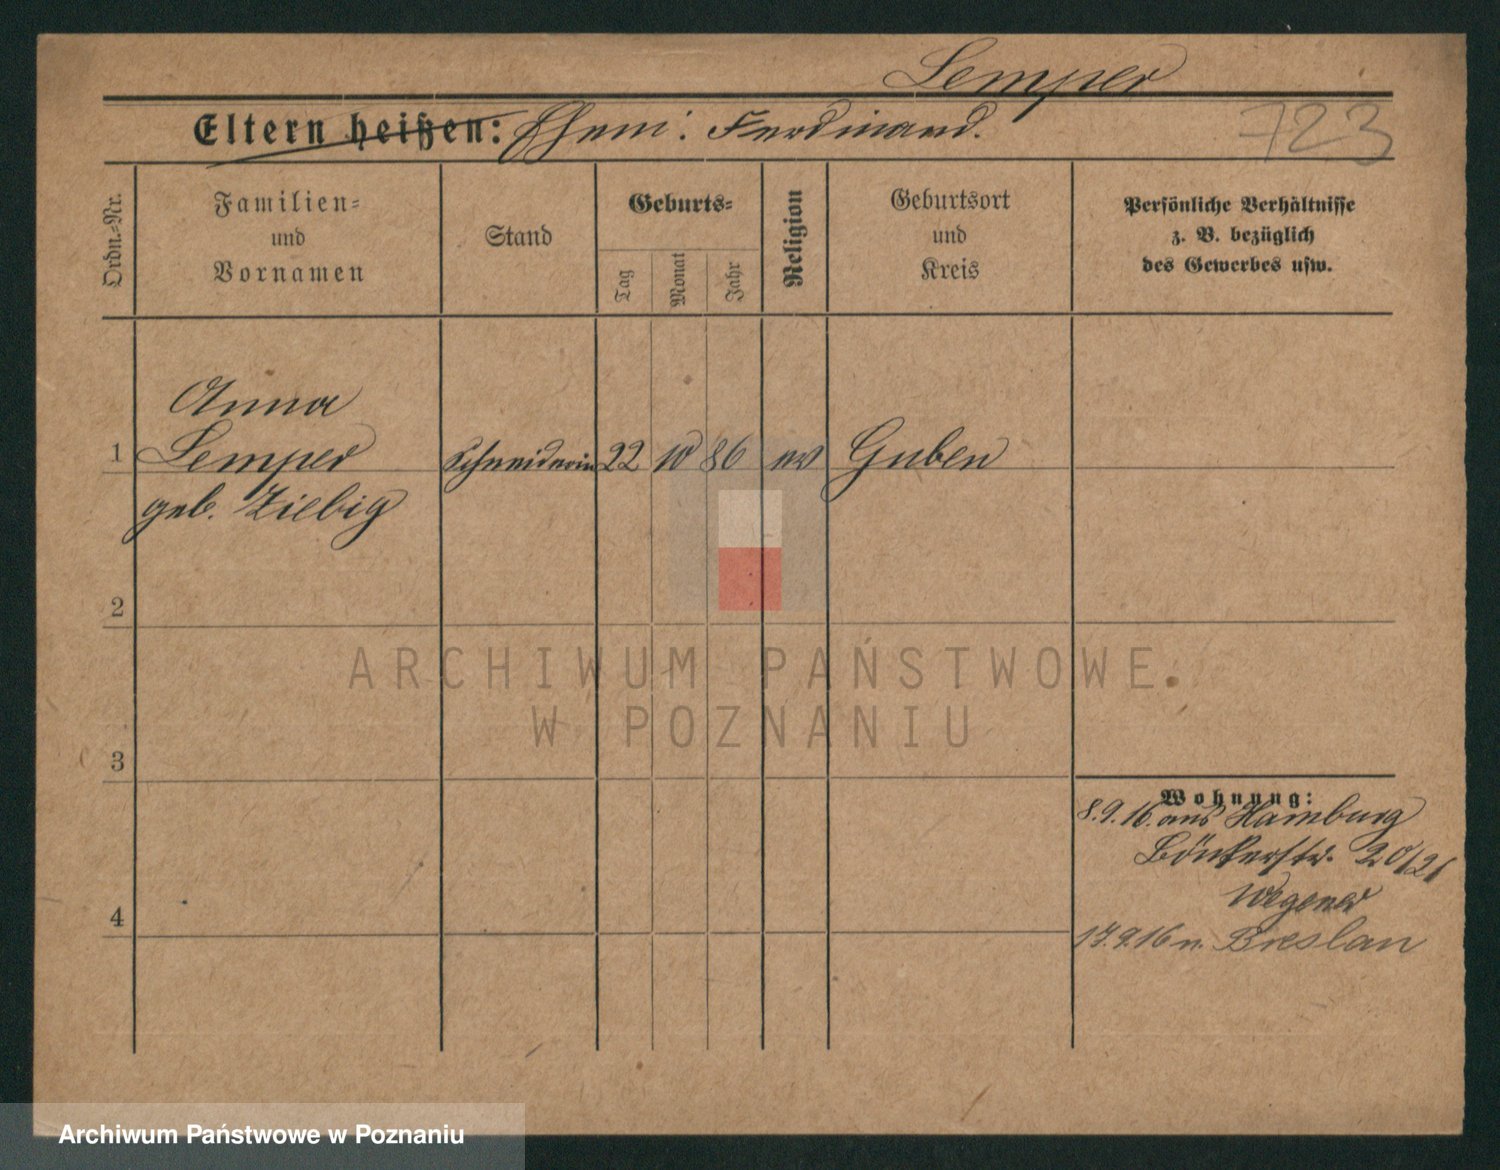 Semper
Eltern heißen: Ehem: Ferdinand.
723
Ordn.-Nr.
Familien-
und
Vornamen
Stand
Geburts-
Tag
Monat
Jahr
Religion
Geburtsort
und
Kreis
Persönliche Verhältnisse
z. B. bezüglich
des Gewerbes usw.
Anna
1 Semper Schneiderin 22 10 86 ev Guben
geb. Ziebig
2
ARCHIWUM PAŃSTWOWE
W POZNANIU
3
Wohnung:
8.9.16. aus Hamburg
Bäckerstr. 20/21
Wegener
4
17.9.16 n. Breslau
Archiwum Państwowe w Poznaniu